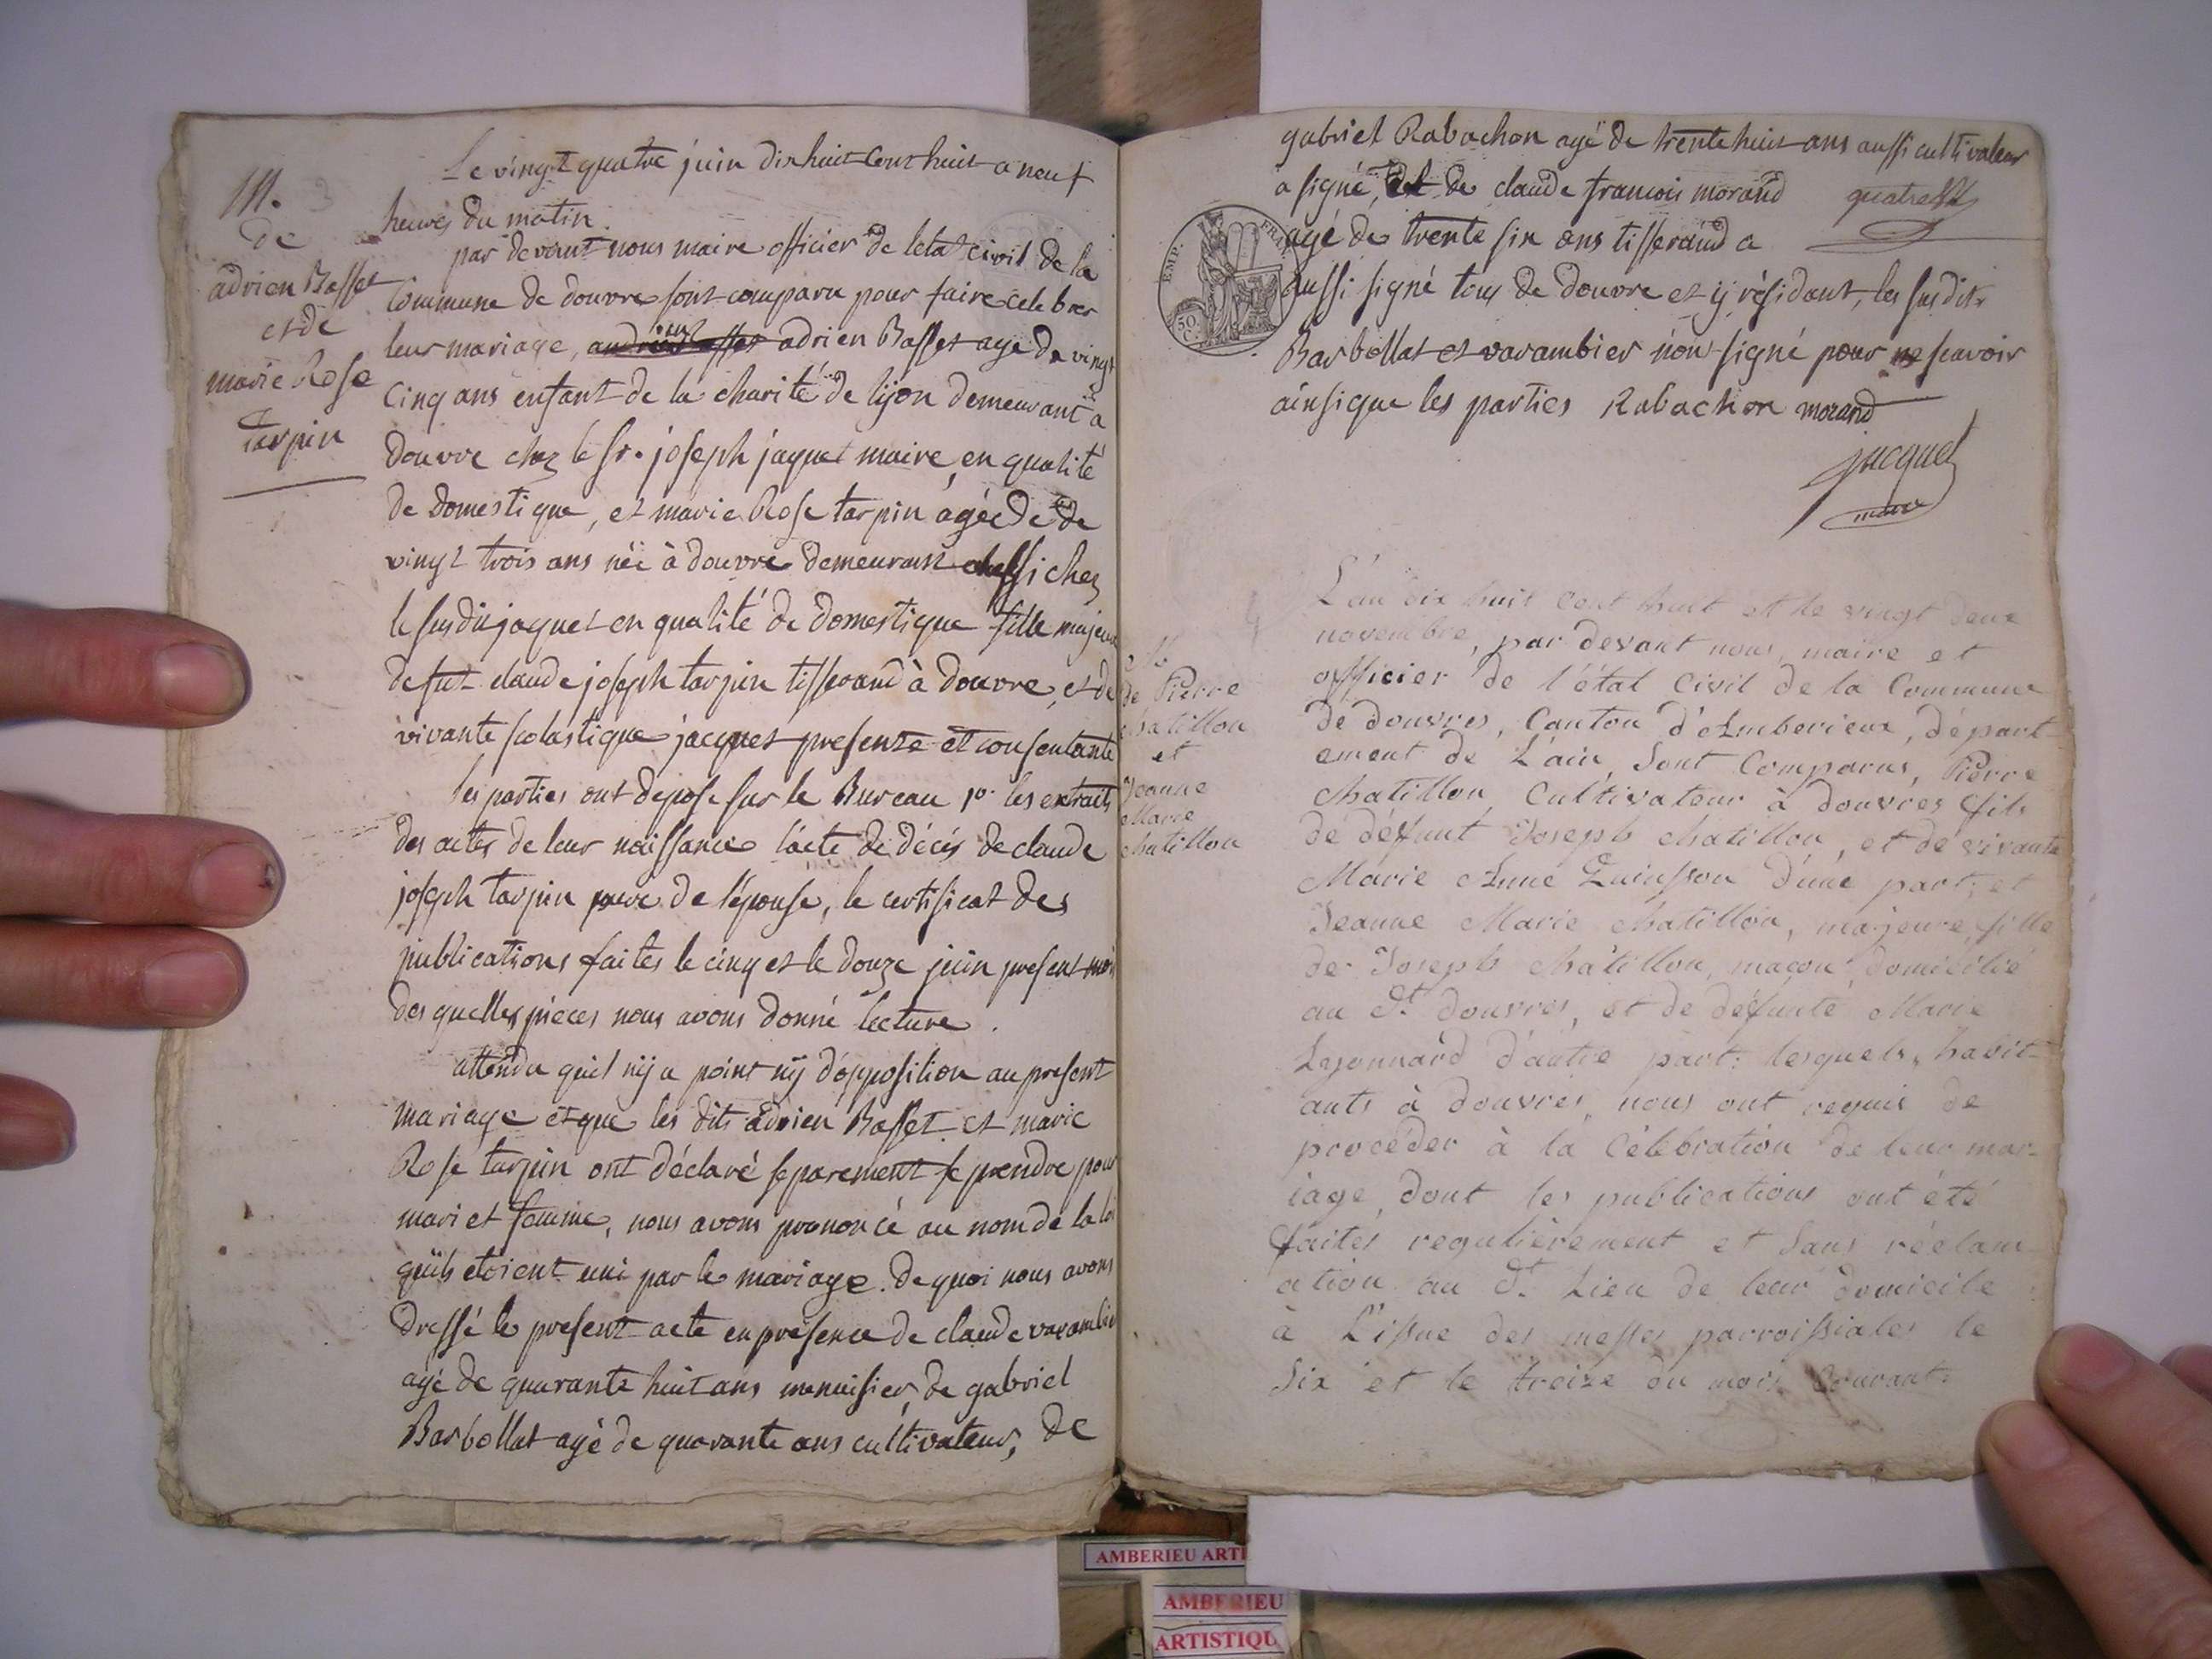 M. 3
de
adrien Basset
et de
marie Rose
tarpin
Le vingt quatre juin dix huit cent huit a neuf
heures du matin.
par devant nous maire officier de letat civil de la
Commune de douvre sont comparu pour faire celebrer
leur mariage, adrien Basset agé de vingt
cinq ans enfant de la charité de lijon demeurant à
douvre chez le sr. joseph jaquet maire en qualité
de domestique, et marie Rose tarpin agée de de
vingt trois ans née à douvre demeurant aussi chez
le susdit jaquet en qualité de domestique fille majeure
de fut claude joseph tarpin tisserand à douvre, et de
vivante scolastique jacquet presente et consentante
les parties ont deposé sur le Bureau 1o. les extraits
des actes de leur naissance l'acte de décés de claude
joseph tarpin pere de l'épouse, le certificat des
publications faites le cinq et le douze juin present mois
des quelles pieces nous avons donné lecture.
attendu quil nÿ a point nÿ d'opposition au present
mariage et que les dits adrien Basset et marie
Rose tarpin ont déclaré separement se prendre pour
mari et femme, nous avons prononcé au nom de la loi
qu'ils etoient uni par le mariage. de quoi nous avons
dressé le present acte en présence de claude varambier
agé de quarante huit ans menuisier, de gabriel
Barbollat agé de quarante ans cultivateur, de
gabriel Rabachon agé de trente huit ans aussi cultivateur
a signé, et de claude francois morand
agé de trente six ans tisserand a
aussi signé tous de douvre et ÿ résidant, les susdits
Barbollat et varambier non signé pour ne scavoir
ainsi que les parties Rabachon morand
jacquet
maire
EMP. FRAN.
50 C.
4
de Pierre
chatillon
et
Jeanne
Marie
chatillon
L'an dix huit cent huit et le vingt deux
novembre, par devant nous, maire et
officier de l'état civil de la Commune
de douvres, Canton d'Amberieux, départ
ement de L'ain, Sont Comparus, Pierre
chatillon, Cultivateur à douvres fils
de défunt Joseph chatillon, et de vivante
Marie Anne Quinsson d'une part, et
Jeanne Marie chatillon, majeure, fille
de Joseph chatillon, maçon, domicilié
au dt. douvres, et de défunte Marie
Leyonnard d'autre part; lesquels, habit-
ants à douvres, nous ont requis de
procéder à la Célébration de leur mar-
iage, dont les publications ont été
faites regulièrement et Sans réclam
ation au dt. Lieu de leur domicile
à L'issue des messes parroissiales le
Six et le treize du mois Courant.
AMBERIEU ARTI
AMBERIEU
ARTISTIQU